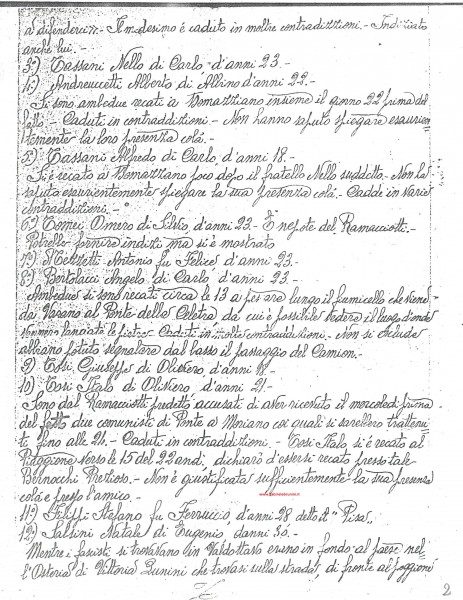 a difenderci".- Il medesimo è caduto in moltre contradizzioni.- Indiziato
anche lui.-
3°) Cassani Nello di Carlo, d'anni 23.-
4°) Andreuccetti Alberto di Albino d'anni 22.-
Si sono ambedue recati a insieme il giorno 22 prima del
fatto.- Caduti in contraddizioni.- Non hanno saputo spiegare esaurien=
temente la loro presenza colà.-
5°) Cassani Alfredo di Carlo, d'anni 18.-
Si è recato a poco dopo il fratello Nello suddetto.- Non ha
saputo esaurientemente spiegare la sua presenza colà.- Cadde in varie
contradizzioni.-
6°) Tomei Omero di Silvio, d'anni 23.- È nepote del Ramacciotti.-
Potrebbe fornire indizi ma si è mostrato
7°) Antonio fu Felice, d'anni 23.-
8°) Bertolacci Angelo di Carlo, d'anni 23.-
Ambedue si sono recati circa le 13 a pescare lungo il fiumicello che viene
da Varano al Ponte della da cui è possibile vedere il luogo d'onde
vennero lanciate le pietre. Caduti in molte contraddizioni.- Non si esclude
abbiano potuto segnalare dal basso il passaggio del Camion.-
9°) Tosi Giuseppe di Oliviero, d'anni 18.
10°) Tosi Italo di Oliviero d'anni 21.-
Sono dal Ramacciotti predetto accusati di aver ricevuto il mercoledì prima
del fatto due comunisti di Ponte a Moriano coi quali si sarebbero trattenu=
ti fino alle 24.- Caduti in contraddizioni.- Tosi Italo, si è recato al
Piaggione verso le 15 del 22 andi, dichiarò d'essersi recato presso tale
Bernocchi Pretioso.- Non è giustificata sufficientemente la sua presenza
colà e presso l'amico.-
11°) Filippi Stefano fu Ferruccio, d'anni 28 detto il "Pisa".
12°) Salsini Natale di Eugenio, d'anni 30.-
Mentre i fascisti si trovavano in Valdottavo erano in fondo al paese nel=
l'Osteria di Vittoria Qunini che trovasi sulla strada, di fronte ai
2